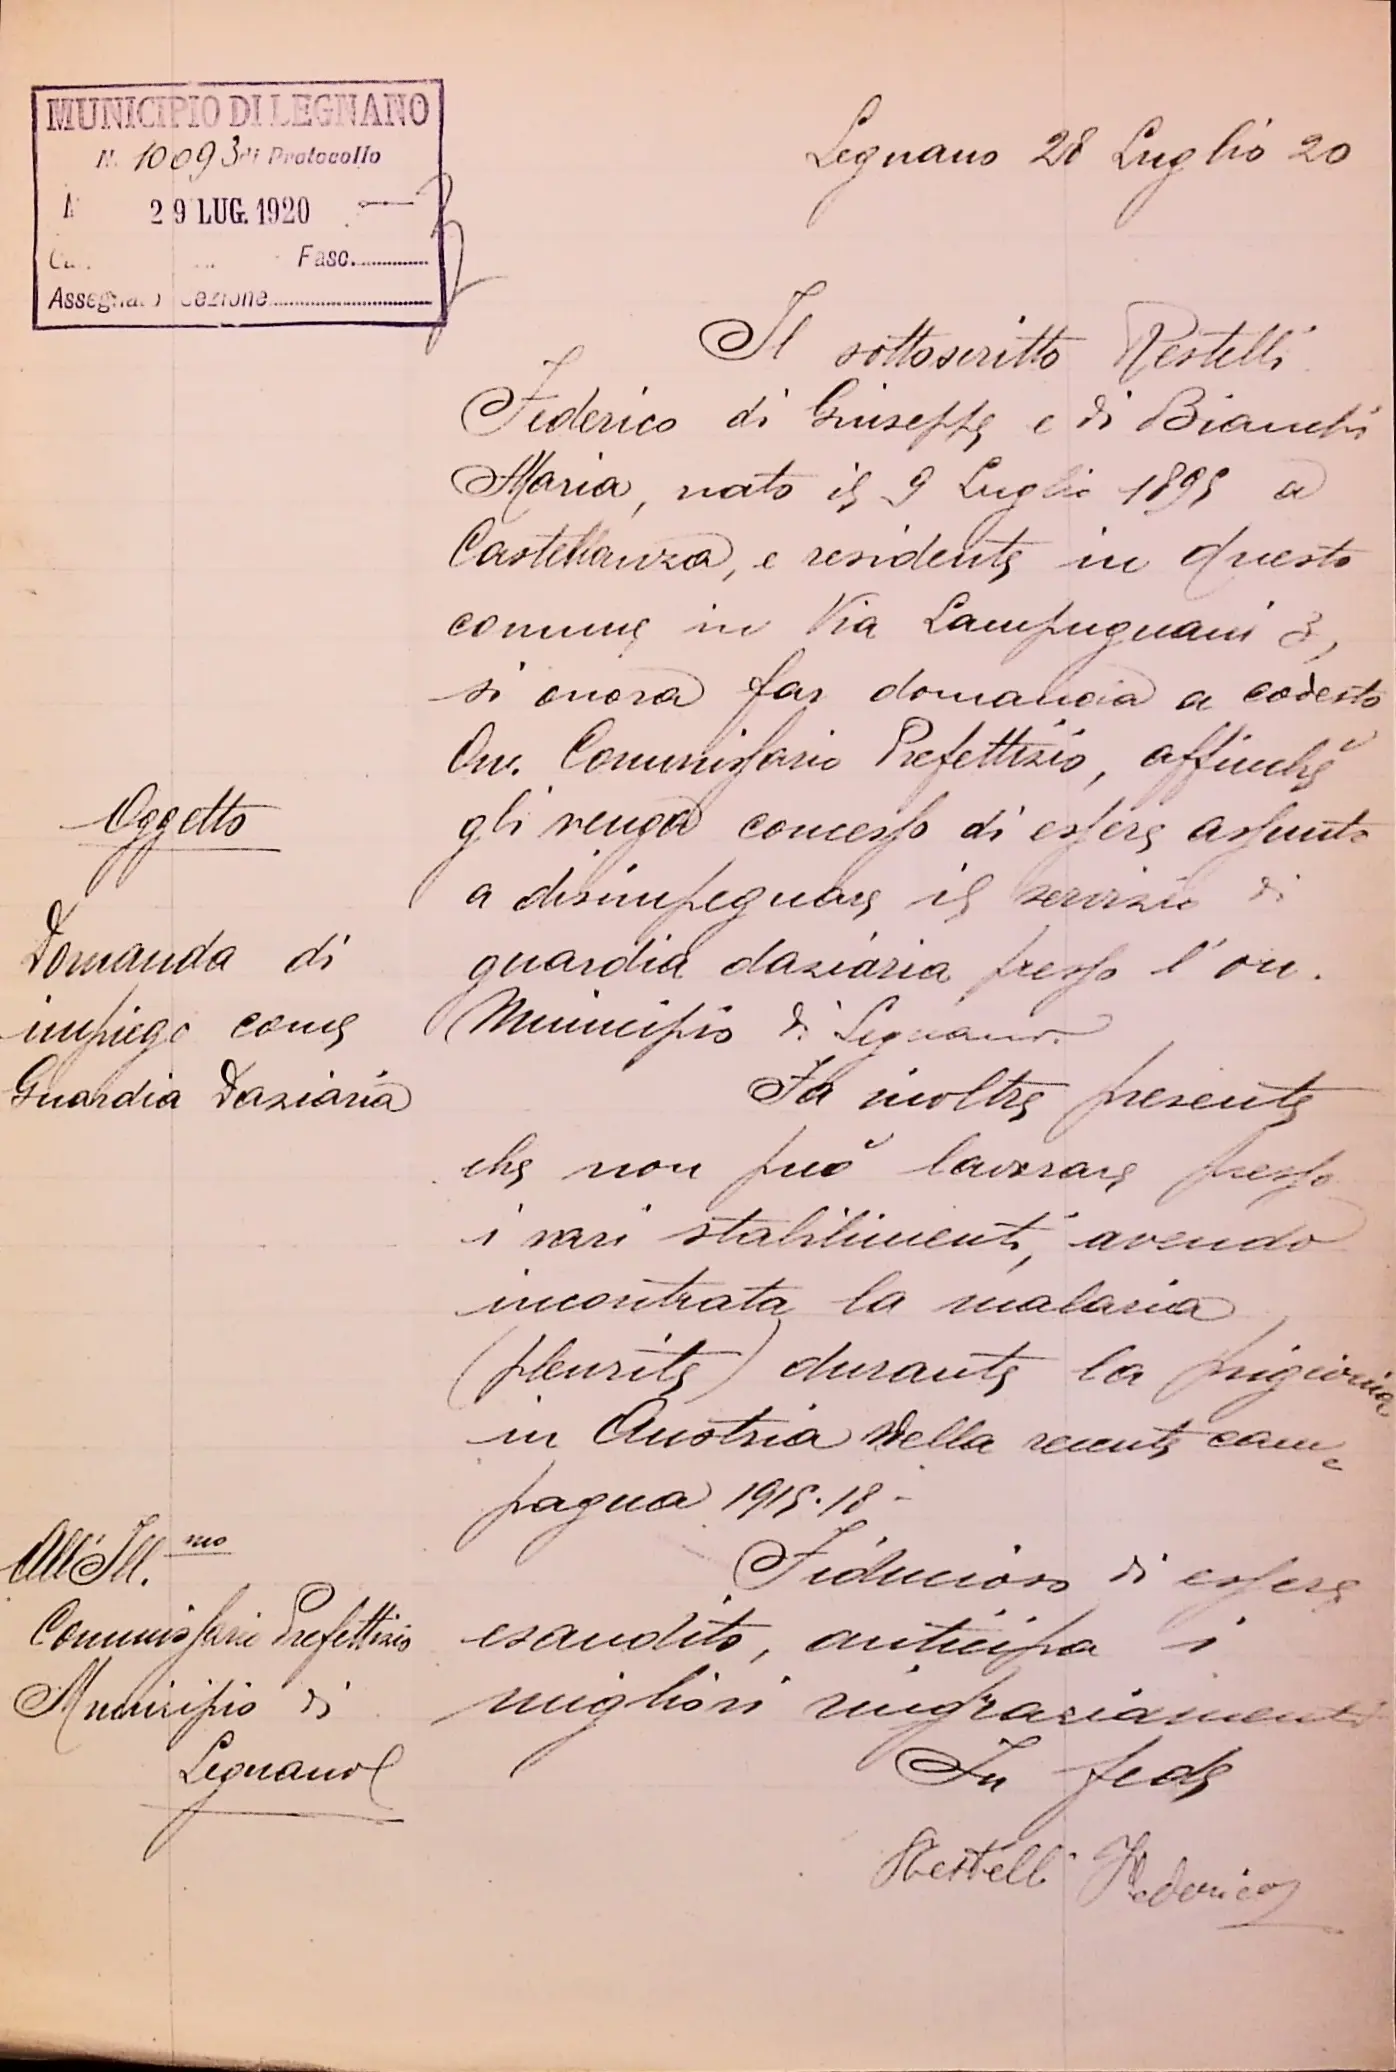 MUNICIPIO DI LEGNANO
N. 10093 di Protocollo
A 29 LUG. 1920
Fasc.
Assegnato Sezione
Legnano 28 Luglio 20
Il sottoscritto Restelli
Federico di Giuseppe e di Bianchi
Maria, nato il 9 Luglio 1895 a
Castellanza, e residente in questo
comune in Via Lampugnani 3,
si onora far domanda a codesto
On. Commissario Prefettizio, affinchè
gli venga concesso di essere assunto
a disimpegnare il servizio di
guardia daziaria presso l'on.
Municipio di Legnano.
Fa inoltre presente
che non può lavorare presso
i vari stabilimenti, avendo
incontrata la malaria
(pleurite) durante la prigionia
in Austria della recente cam-
pagna 1915-18-
Fiducioso di essere
esaudito, anticipa i
migliori ringraziamenti
In fede
Restelli Federico
Oggetto
Domanda di
impiego come
Guardia Daziaria
All'Ill.mo
Commissario Prefettizio
Municipio di
Legnano